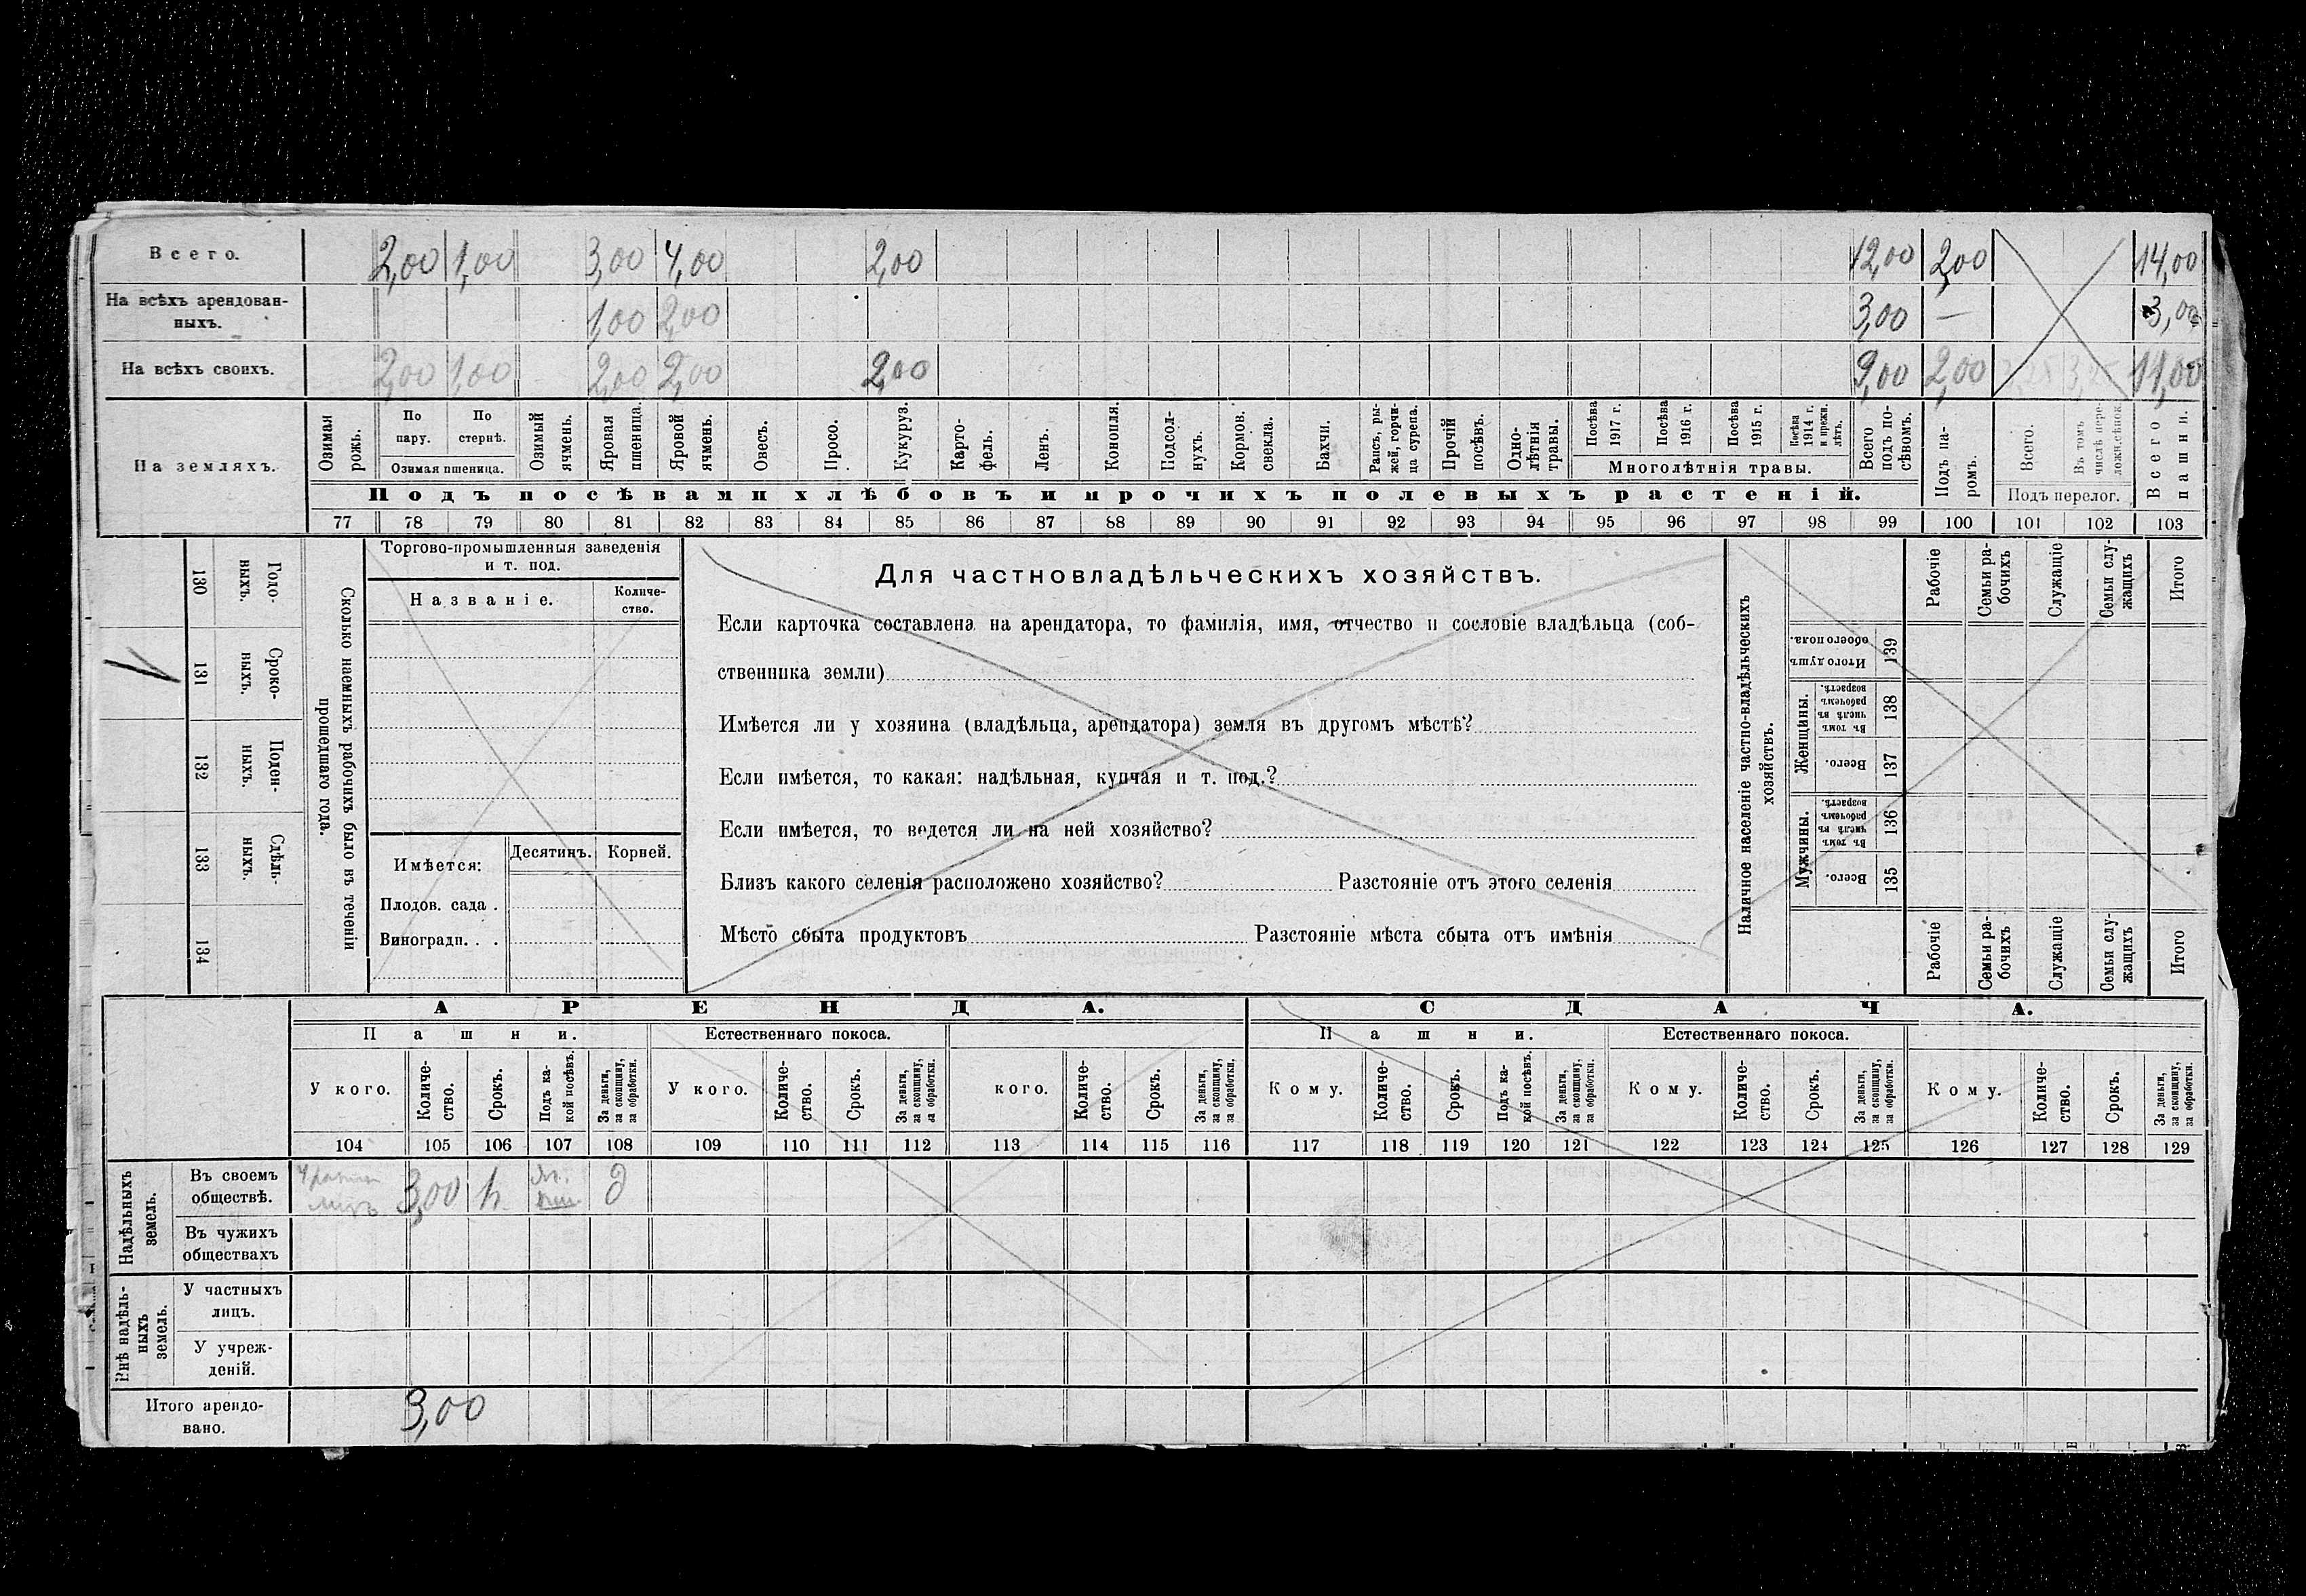 Всего. 2,00 1,00 3,00 4,00 2,00 12,00 2,00 14,00
На всѣхъ арендован-
ныхъ. 1,00 2,00 3,00 — 3,00
На всѣхъ своихъ. 2,00 1,00 2,00 2,00 2,00 9,00 2,00 11,00
На земляхъ.
Озимая рожь.
По пару.
По стернѣ.
Озимая пшеница.
Озимый ячмень.
Яровая пшеница.
Яровой ячмень.
Овесъ.
Просо.
Кукуруз.
Карто-
фель.
Ленъ.
Конопля.
Подсол-
нухъ.
Кормов.
свекла.
Бахчи.
Рапсъ, ры-
жей, горчи-
ца сурепа.
Прочій
посѣвъ.
Одно-
лѣтнія
травы.
Посѣва
1917 г.
Посѣва
1916 г.
Посѣва
1915 г.
Посѣва
1914 г.
и прежн.
лѣтъ.
Многолѣтнія травы.
Всего
подъ по-
сѣвомъ.
Подъ па-
ромъ.
Всего.
Въ томъ
числѣ пере-
ложн.сѣнок.
Подъ перелог.
Всего
пашни.
Подъ посѣвами хлѣбовъ и прочихъ полевыхъ растеній.
77 78 79 80 81 82 83 84 85 86 87 88 89 90 91 92 93 94 95 96 97 98 99 100 101 102 103
Сколько наемныхъ рабочихъ было въ теченіи
прошедшаго года.
Годо-
ныхъ.
130
Сроко-
ныхъ.
131
Поден-
ныхъ.
132
Сдѣль-
ныхъ.
133
134
Торгово-промышленныя заведенія
и т. под.
Названіе.
Количе-
ство.
Имѣется:
Десятинъ. Корней.
Плодов. сада .
Виноградн. . .
Для частновладѣльческихъ хозяйствъ.
Если карточка составлена на арендатора, то фамилія, имя, отчество и сословіе владѣльца (соб-
ственника земли)
Имѣется ли у хозяина (владѣльца, арендатора) земля въ другомъ мѣстѣ?
Если имѣется, то какая: надѣльная, купчая и т. под.?
Если имѣется, то ведется ли на ней хозяйство?
Близъ какого селенія расположено хозяйство? Разстояніе отъ этого селенія
Мѣсто сбыта продуктовъ Разстояніе мѣста сбыта отъ имѣнія
Наличное населеніе частно-владѣльческихъ
хозяйствъ.
Рабочіе
Семьи ра-
бочихъ
Служащіе
Семьи слу-
жащихъ
Итого
Итого душъ
обоего пола.
139
Женщины.
Въ томъ
числѣ въ
рабочемъ
возрастѣ.
138
Всего.
137
Мужчины.
Въ томъ
числѣ въ
рабочемъ
возрастѣ.
136
Всего.
135
Рабочіе
Семьи ра-
бочихъ
Служащіе
Семьи слу-
жащихъ
Итого
АРЕНДА. СДАЧА.
Пашни. Естественнаго покоса. Пашни. Естественнаго покоса.
У кого.
Количе-
ство.
Срокъ.
Подъ ка-
кой посѣвъ.
За деньги,
за скопщину,
за обработки.
У кого.
Количе-
ство.
Срокъ.
За деньги,
за скопщину,
за обработки.
кого.
Количе-
ство.
Срокъ.
За деньги,
за скопщину,
за обработки.
Кому.
Количе-
ство.
Срокъ.
Подъ ка-
кой посѣвъ.
За деньги,
за скопщину,
за обработки.
Кому.
Количе-
ство.
Срокъ.
За деньги,
за скопщину,
за обработки.
Кому.
Количе-
ство.
Срокъ.
За деньги,
за скопщину,
за обработки.
104 105 106 107 108 109 110 111 112 113 114 115 116 117 118 119 120 121 122 123 124 125 126 127 128 129
Надѣльныхъ
земель.
Въ своемъ
обществѣ. 3,00
Въ чужихъ
обществахъ
Внѣ надѣль-
ныхъ
земель.
У частныхъ
лицъ.
У учреж-
деній.
Итого арендо-
вано. 3,00